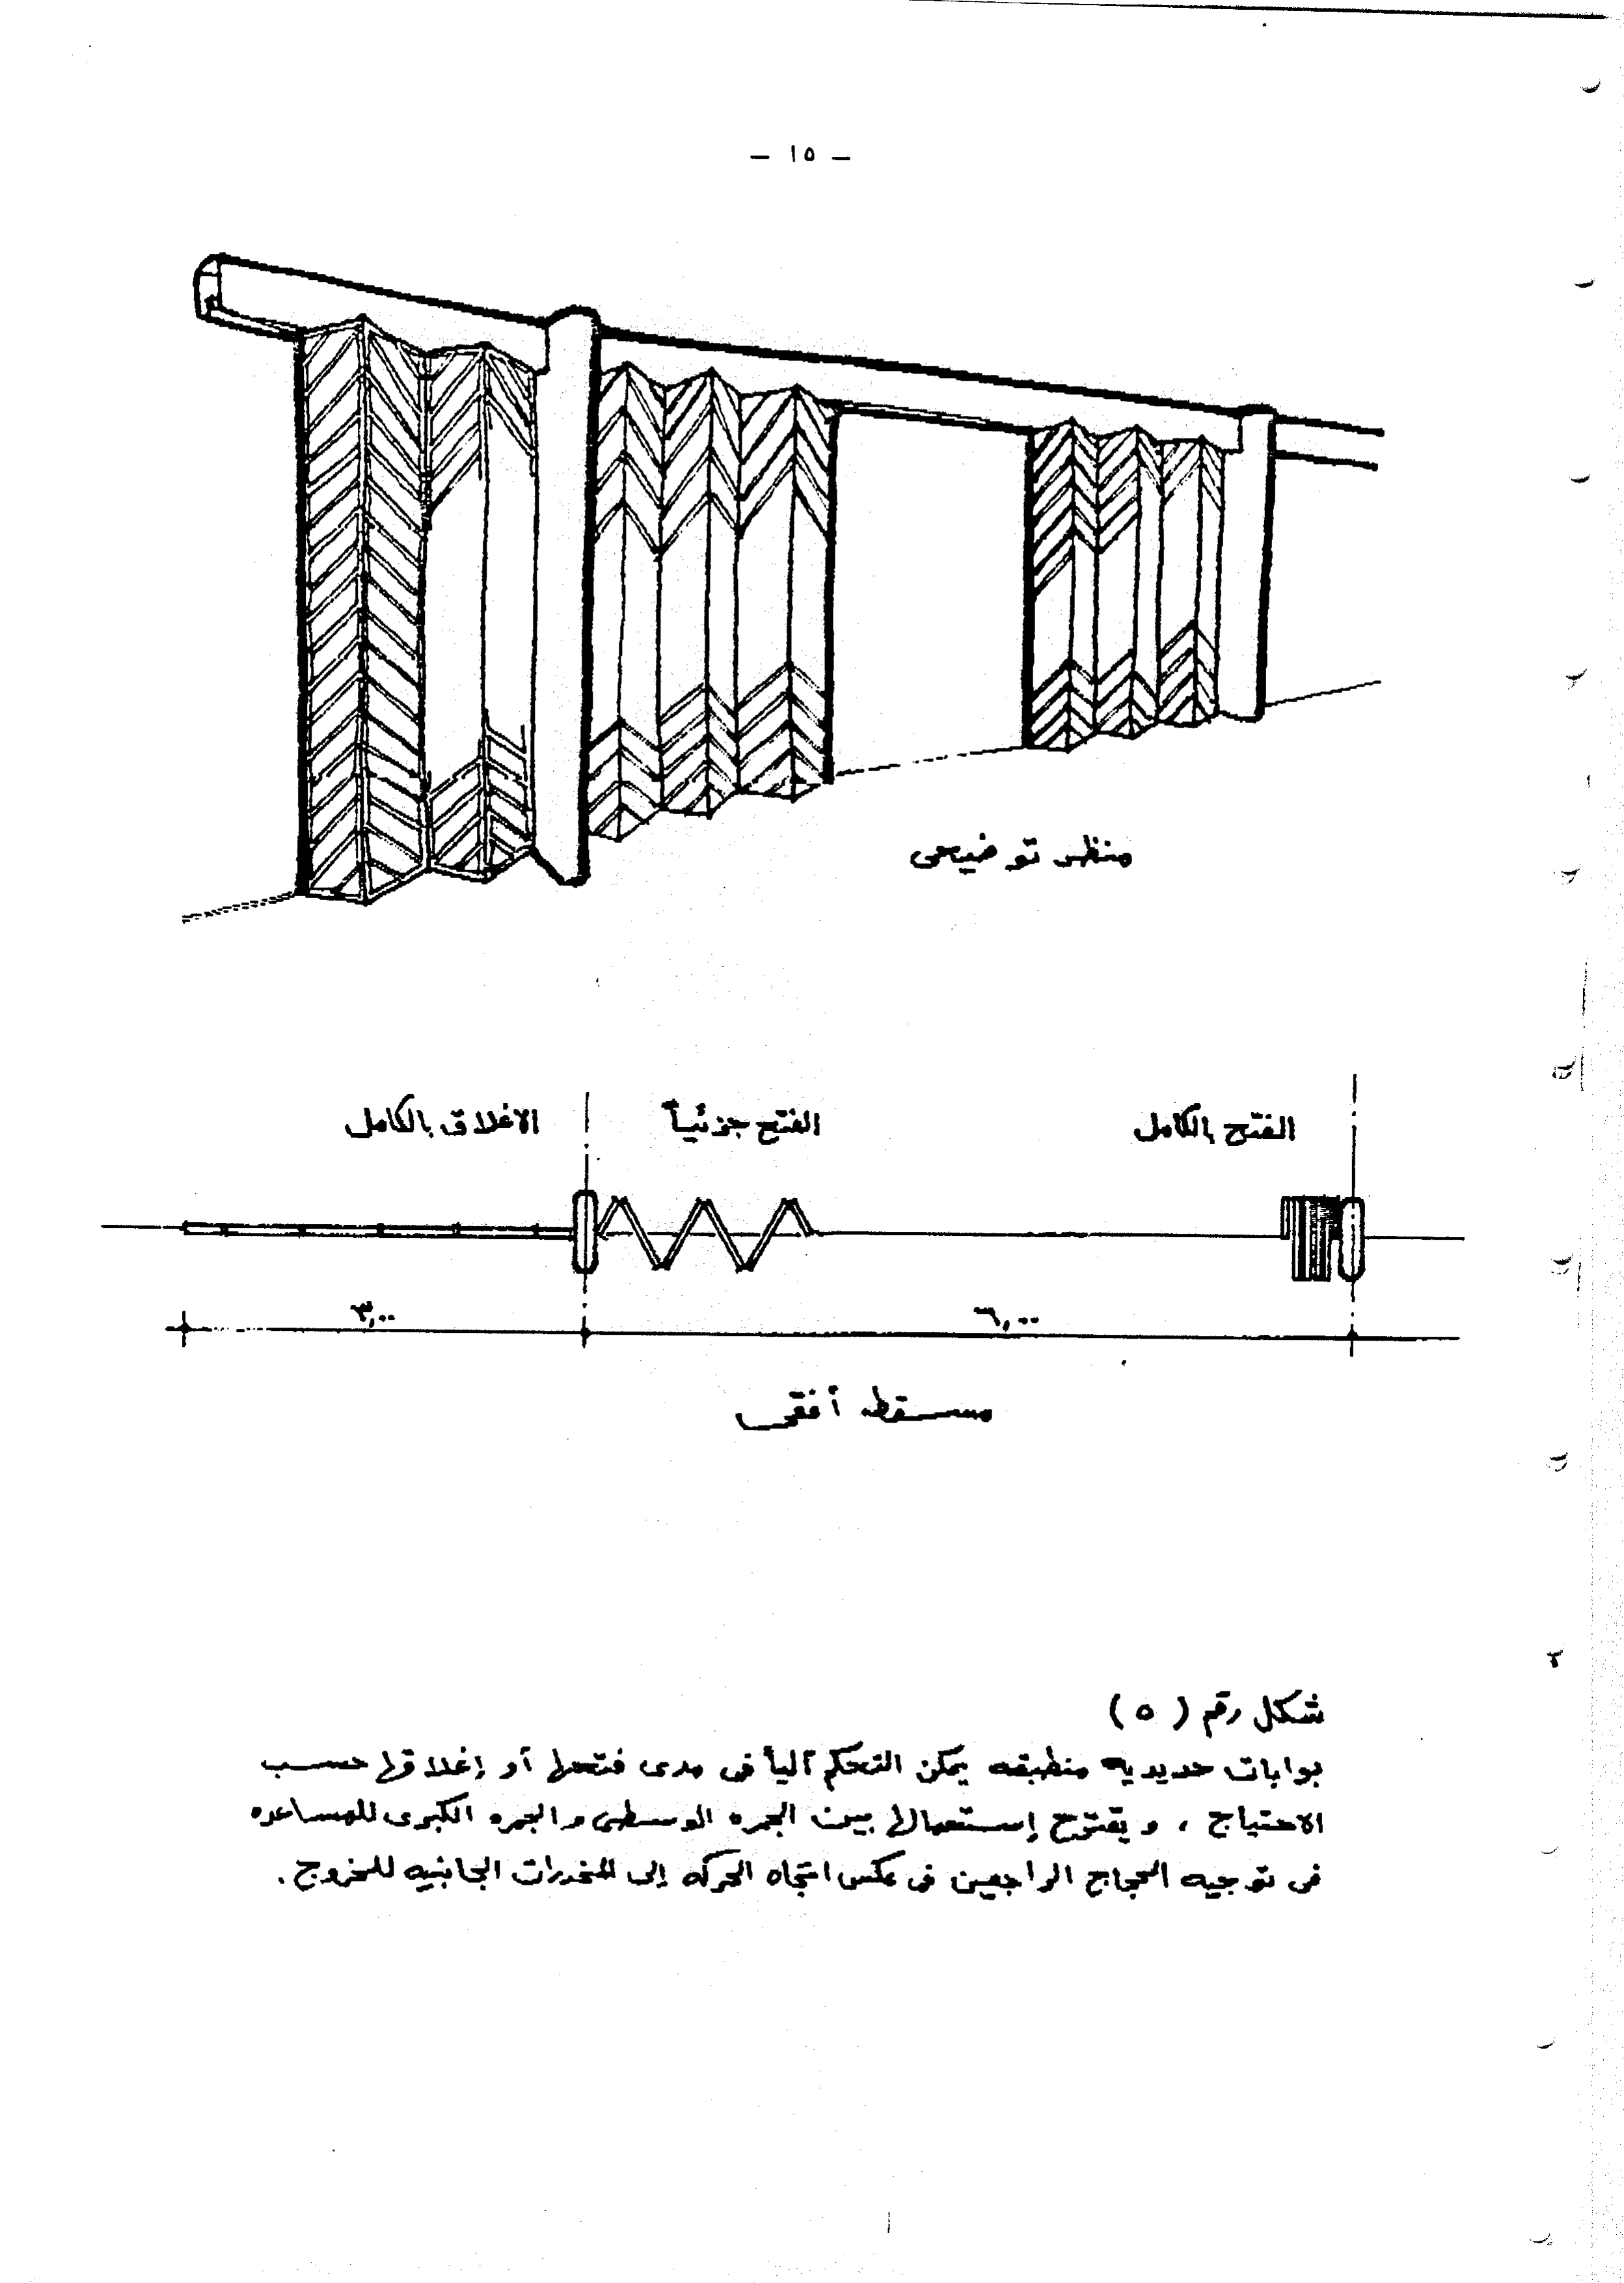 – ١٥ –
منظر توضيحى
الفتح بالكامل
الفتح جزئياً
الاغلاق بالكامل
٦,٠٠
٣,٠٠
مسقط أفقى
شكل رقم ( ٥ )
بوابات حديديه منطبقه يمكن التحكم آلياً فى مدى فتحها أو إغلاقها حسب
الاحتياج ، ويقترح إستعمالها بين الجمره الوسطى والجمره الكبرى للمساعده
فى توجيه الحجاج الراجعين فى عكس اتجاه الحركه إلى المنحدرات الجانبيه للخروج .